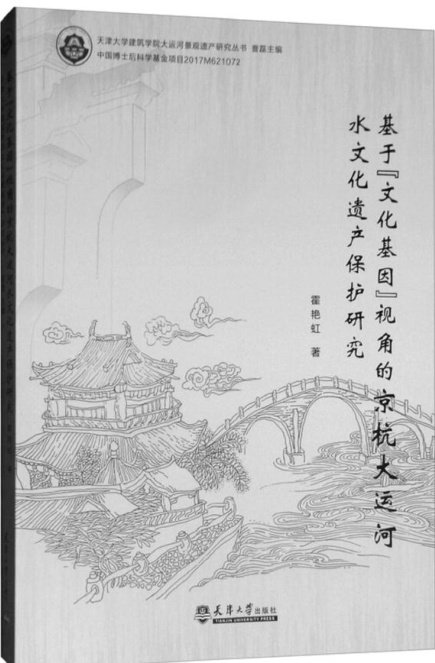 天津大学建筑学院大运河景观遗产研究丛书 曹磊主编
中国博士后科学基金项目2017M621072
基于『文化基因』视角的京杭大运河
水文化遗产保护研究
霍艳虹 著
天津大学出版社
TIANJIN UNIVERSITY PRESS